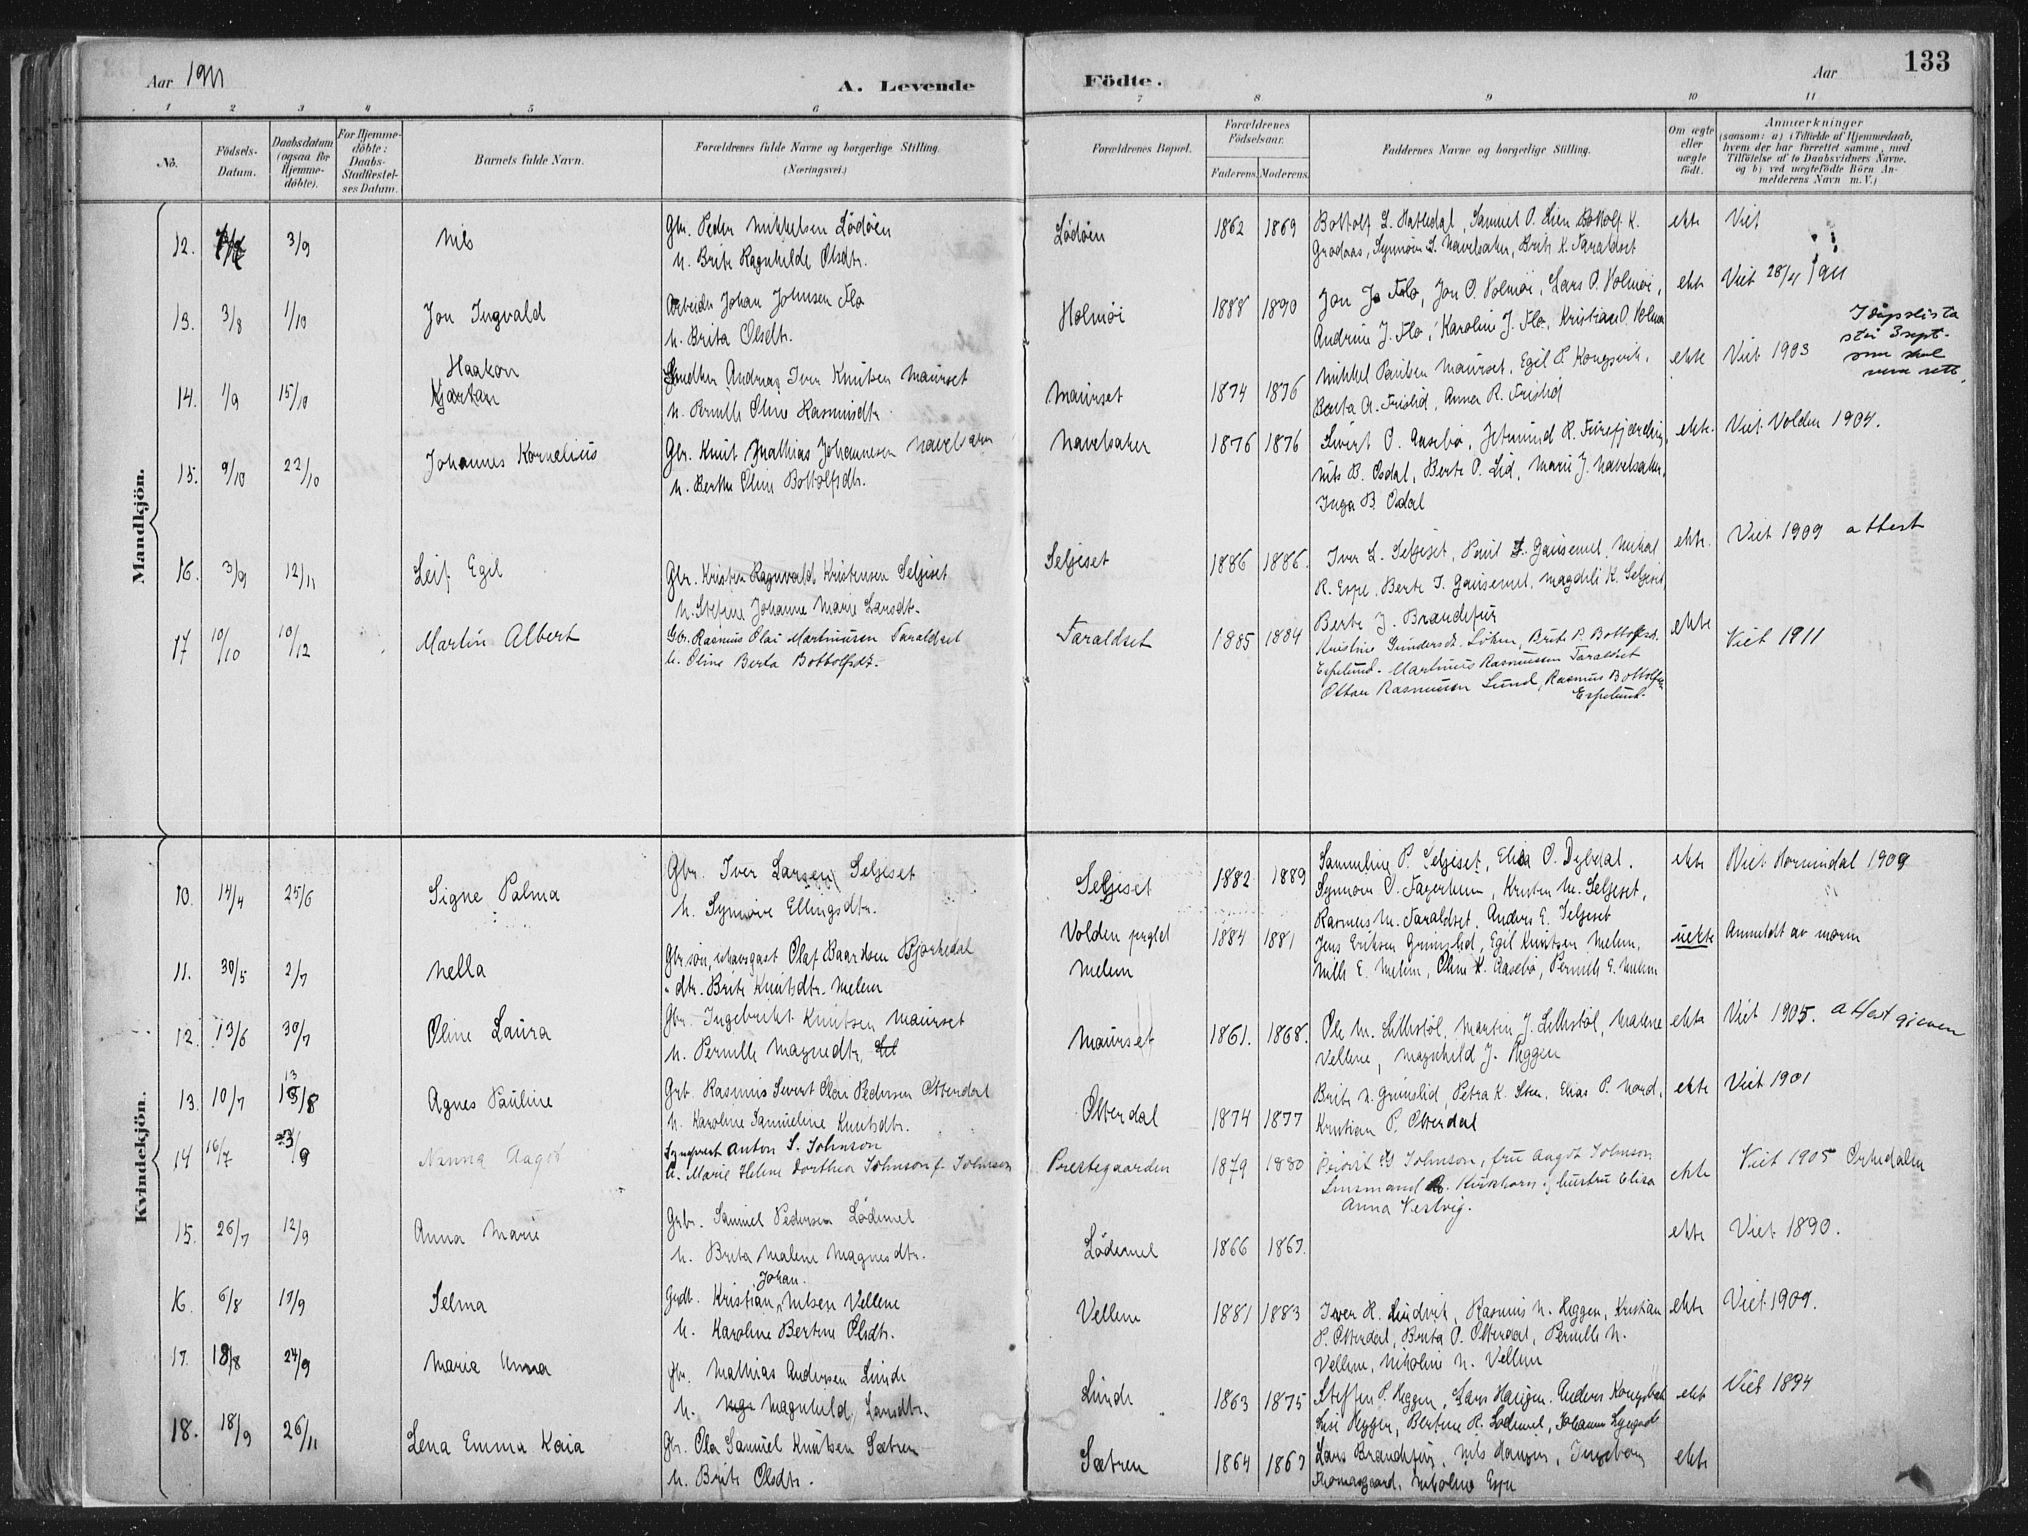 Aar 1911
A. Levende
Födte.
Aar
133
1 2 3 4 5 6 7 8 9 10 11
No.
Födsels-Datum.
Daabsdatum (ogsaa for Hjemme-döbte).
For Hjemme-döbte: Daabs-Stadfæstel-ses Datum.
Barnets fulde Navn.
Forældrenes fulde Navne og borgerlige Stilling. (Næringsvei.)
Forældrenes Bopæl.
Forældrenes Födselsaar.
Faderens. Moderens.
Faddernes Navne og borgerlige Stilling.
Om ægte eller uægte födt.
Anmærkninger
(saasom: a) i Tilfælde af Hjemmedaab, hvem der har forrettet samme, med Tilföielse af to Daabsvidners Navne, og b) ved uægtefödte Börn An-melderens Navn m. V.)
Mandkjön.
12. 3/9 Nils
Gbr. Peder Mikkelsen Lødøen
h. Brite Ragnhilde Olsdtr.
Lødøen 1862 1869
Bottolf L. Hatledal, Samuel O. Lien Bottolf K.
Grodaas, Synnøve S. Navelsaker, Brite K. Taraldset
ekte Viet
13. 3/8 1/10 Jon Ingvald
Arbeider Johan Johnsen Flo
h. Brita Olsdtr.
Holmøi 1888 1890
Jon J. Flo, Jon O. Holmøi, Lars O. Holmøi,
Andrine J. Flo, Karoline J. Flo, Kristian O. Holmøi
ekte Viet 28/4 1911
I dåpslista står 3 sept. som skal vera rett.
14. 1/9 15/10 Haakon Kjartan
Andreas Iver Knutsen Maurset
h. Pernille Oline Rasmusdtr.
Maurset 1874 1876
Mikkel Paulsen Maurset, Egil P. Kongsvik,
Berta A. Frislid, Anna R. Frislid
ekte Viet 1903
15. 9/10 22/10 Johannes Kornelius
Gbr. Knut Mathias Johannesen Navelsaker
h. Berthe Oline Bottolfsdtr.
Navelsaker 1876 1876
Sivert O. Aasebø, Jetmund R.
Nils B. Osdal, Berte O. Lid, Marie J. Navelsaker,
Inga B. Osdal
ekte. Viet Volden 1904.
16. 3/9 12/11 Leif Egil
Gbr. Kristen Ragnvald Kristensen Seljeset
h. Stefine Johanne Marie Larsdtr.
Seljeset 1886 1886.
Iver L. Seljeset, Paul I. Gausemel, Mikal
R. Espe, Berte I. Gausemel, Magdeli K. Seljeset,
Berte J. Brandefur
ekte. Viet 1909 attest
17 10/10 10/12 Martin Albert
Gbr. Rasmus Olai Martinusen Taraldset
h. Oline Berta Bottolfsdt.
Taraldset 1885 1884
Kristine Gundersdt. Løken, Brite P. Bottolfsdt.
Espelund. Martinus Rasmussen Taraldset
Ottar Rasmussen Lund, Rasmus Bottolfsen
Espelund.
ekte Viet 1911
Kvindekjön.
10. 14/4 25/6 Signe Palma
Gbr. Iver Larsen Seljeset
h. Synnøve Ellingsdtr.
Seljeset 1882 1889
Samueline P. Seljeset, Elisa O. Dybdal.
Synnøve O. Fagerheim, Kristen M. Seljeset,
Rasmus M. Taraldset, Anders E. Seljeset
ekte Viet Hornindal 1909
11. 30/5 2/7 Nella
Gbrsøn, Olaf Baardsen Bjørkedal
" dtr. Brite Knutsdtr. Melem
Volden prgld
Melem 1884 1881
Jens Eriksen Grimslid, Egil Knutsen Melem,
Nille E. Melem, Oline K. Aasebø, Pernille E. Melem
uekte Anmeldt av moren
12. 13/6 30/7 Oline Laura
Gbr. Ingebrikt Knutsen Maurset
h. Pernille Magnedtr.
Maurset 1861. 1868.
Ole M. Lethstøl, Martin J. Lethstøl, Makne
Vellene, Magnhild J. Heggen
ekte Viet 1905. attest given
13. 10/7 13 /8 Agnes Pauline
Gbr. Rasmus Sivert Olai Pedersen Otterdal
h. Karoline Samueline Knutsdtr.
Otterdal 1874 1877
Brite N. Grimslid, Petra K. Steen, Elias P. Nord,
Kristian P. Otterdal
ekte Viet 1901
14 16/7 3/9 Nanna Aagot
Sogneprest Anton S. Johnson
h. Marie Helene Dorthea Johnson f. Johnson
Prestegaarden 1879 1880
Johnson, fru Aagot Johnson
Lensmand Kirkhorn, hustru Elisa
Anna Vestvig.
ekte Viet 1905 Orkedalen
15. 26/7 12/9 Anna Marie
Gbr. Samuel Pedersen Lødemel
h. Brita Malene Magnesdtr.
Lødemel 1866 1867.
ekte Viet 1890.
16. 6/8 17/9 Selma
Gbr. Kristian Johan Nilsen Vellene
h. Karoline Bertine Olsdtr.
Vellene 1881 1883
Iver H. Lindvik, Rasmus N. Heggen, Kristian
P. Otterdal, Brita O. Otterdal, Pernille N.
Vellene, Nikoline N. Vellene
ekte Viet 1909.
17. 18/8 24/9 Maria Anna
Gbr. Mathias Andersen Linde
h. Magnhild Larsdtr.
Linde 1863 1875
Steffen P. Heggen, Lars Haugen, Anders
Heggen, Bertine R. Lødemel, Johanne
ekte Viet 1894
18. 18/9 26/11 Lena Emma Kaia
Gbr. Ola Samuel Knutsen Sætren
h. Brite Olsdtr.
Sætren 1864 1867
Lars Brandefur, Nils Haugen, Ingeborg
Tomasgaard, Nikoline Espe
ekte